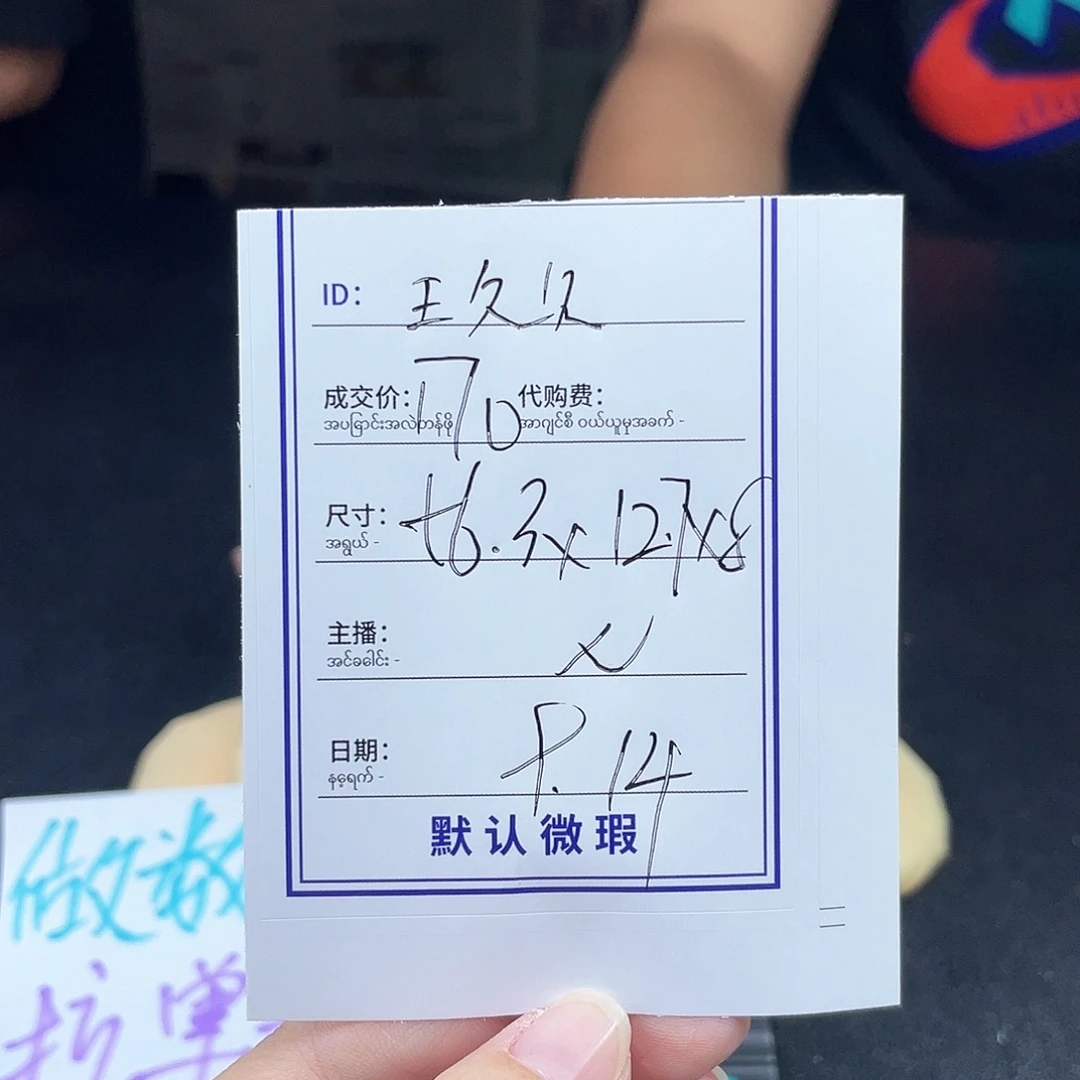 ID: 王久久
成交价: 170 代购费:
အပြောင်းအလဲတန်ဖိုး အာဂျင်စီ ဝယ်ယူမှုအခက် -
尺寸: 16.3x12.7x8
အရွယ် -
主播:
အင်ခေါင်း -
日期: 9.14
နေ့ရက် -
默认微瑕
做数